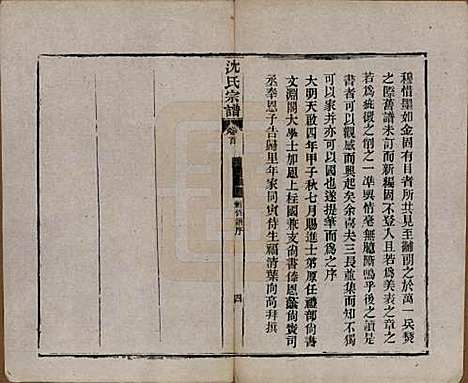 穆惜墨如金固有目者所共見至辭前之於萬一兵燹
之際舊譜未訂而新編固不登入且若為美表之章之
若為疵瑕之一準輿情毫無臆斷嗚乎後之讀是
書者可以觀感而興起矣余喜夫三長萬集而知不獨
可以家并亦可以國也遂提筆而為之序
大明天啟四年甲子秋七月賜進士第原任禮部尚書
文淵閣大學士加恩上柱國兼支尚書俸恩蔭尚寶司
丞奉恩予告歸里年家同寅侍生福清葉向高拜撰
沈氏宗譜
卷首
序
四